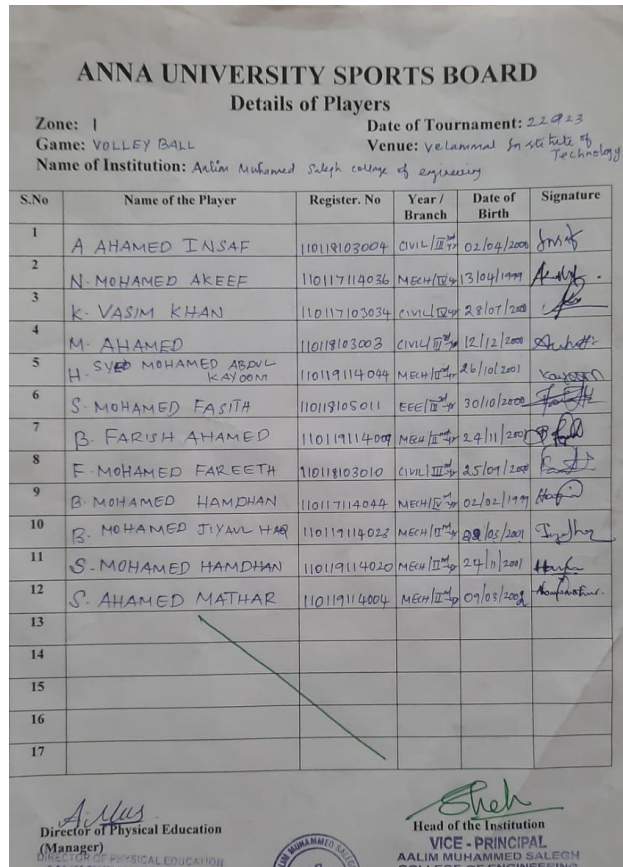 ANNA UNIVERSITY SPORTS BOARD
Details of Players
Zone: 1 Date of Tournament: 22923
Game: VOLLEY BALL Venue: Velammal Institute of Technology
Name of Institution: Aalim Muhamed Salegh college of engineering
S.No Name of the Player Register. No Year / Branch Date of Birth Signature
1 A AHAMED INSAF 110118103004 CIVIL/III 02/04/2000
2 N. MOHAMED AKEEF 110117114036 MECH/IV 13/04/1999
3 K. VASIM KHAN 110117103034 CIVIL/IV 28/07/
4 M. AHAMED 110118103003 CIVIL/III 12/12/2000
5 H. SYED MOHAMED ABDUL KAYOOM 110119114044 MECH/II 26/10/2001
6 S. MOHAMED FASITH 110118105011 EEE/III 30/10/2000
7 B. FARISH AHAMED 110119114009 MECH/II 24/11/2001
8 F. MOHAMED FAREETH 110118103010 CIVIL/III 25/09/2000
9 B. MOHAMED HAMDHAN 110117114044 MECH/IV 02/02/1999
10 B. MOHAMED JIYAUL HAQ 110119114023 MECH/II /03/2001
11 S. MOHAMED HAMDHAN 110119114020 MECH/II 24/11/2001
12 S. AHAMED MATHAR 110119114004 MECH/II 09/03/2002
13
14
15
16
17
Director of Physical Education Head of the Institution
(Manager) VICE - PRINCIPAL
DIRECTOR OF PHYSICAL EDUCATION AALIM MUHAMMED SALEGH
COLLEGE OF ENGINEERING